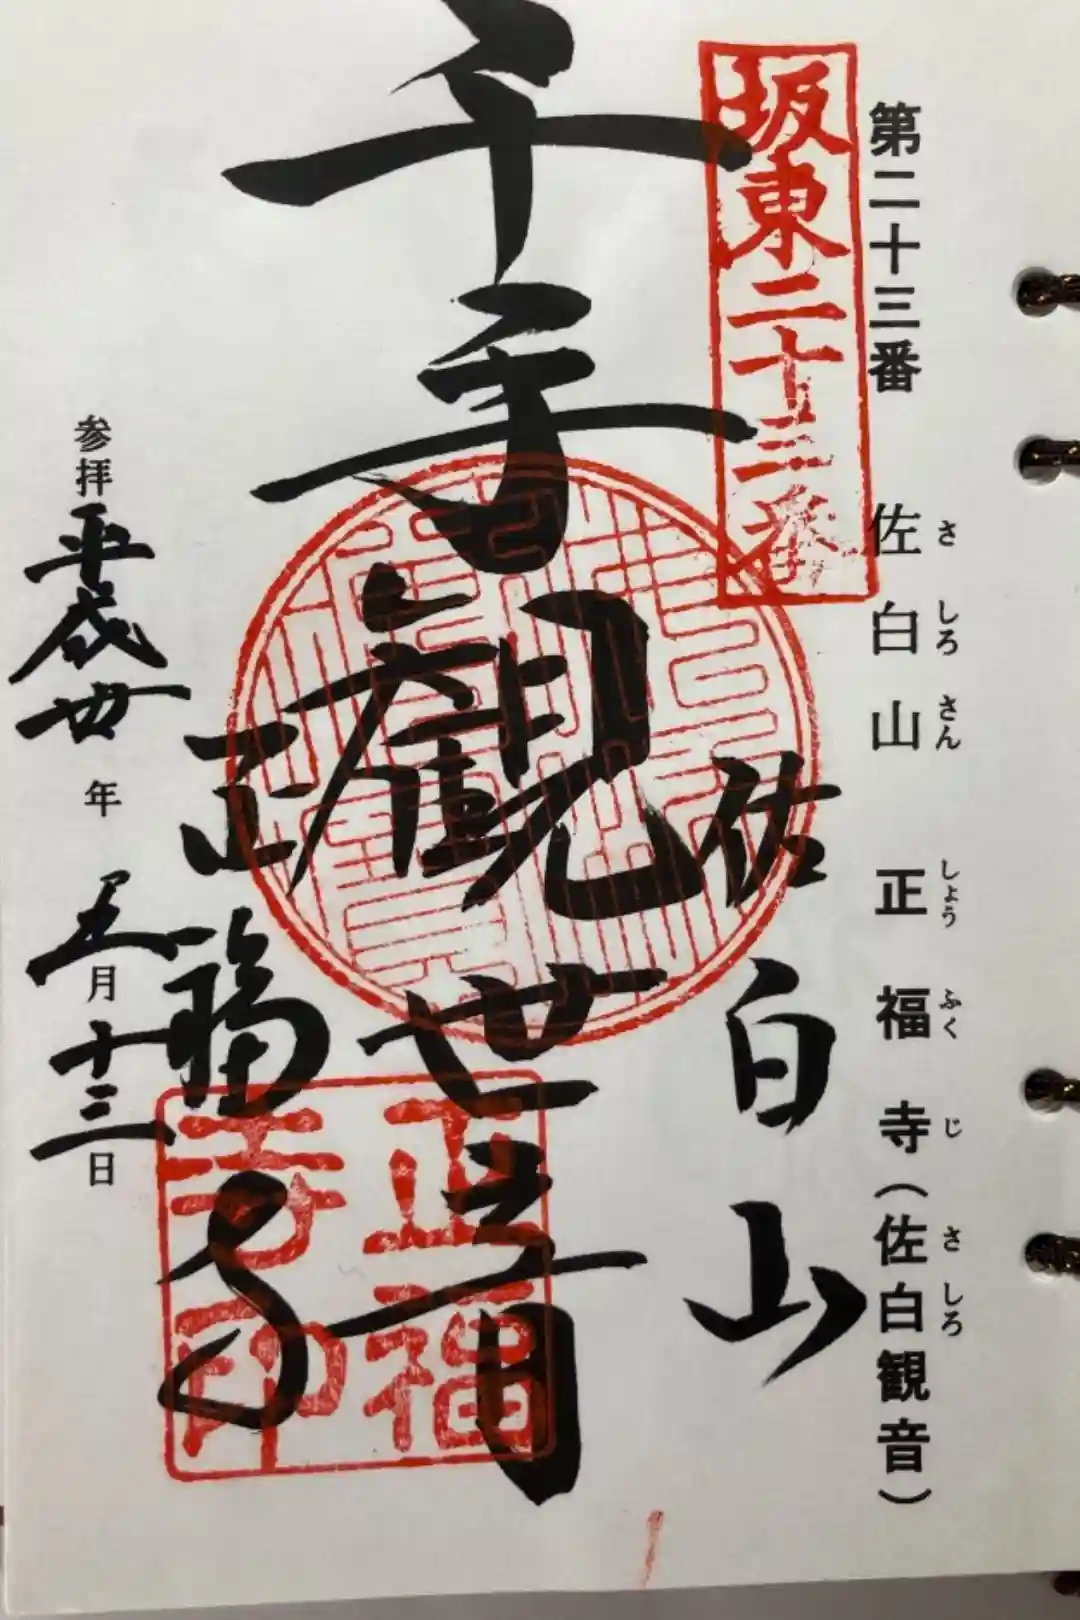 第二十三番 佐白山 正福寺(佐白観音)
さしろさん しょうふくじ さしろ
坂東二十三番
佐白山
千手観世音
正福寺
正福寺印
参拝平成卅年五月十三日